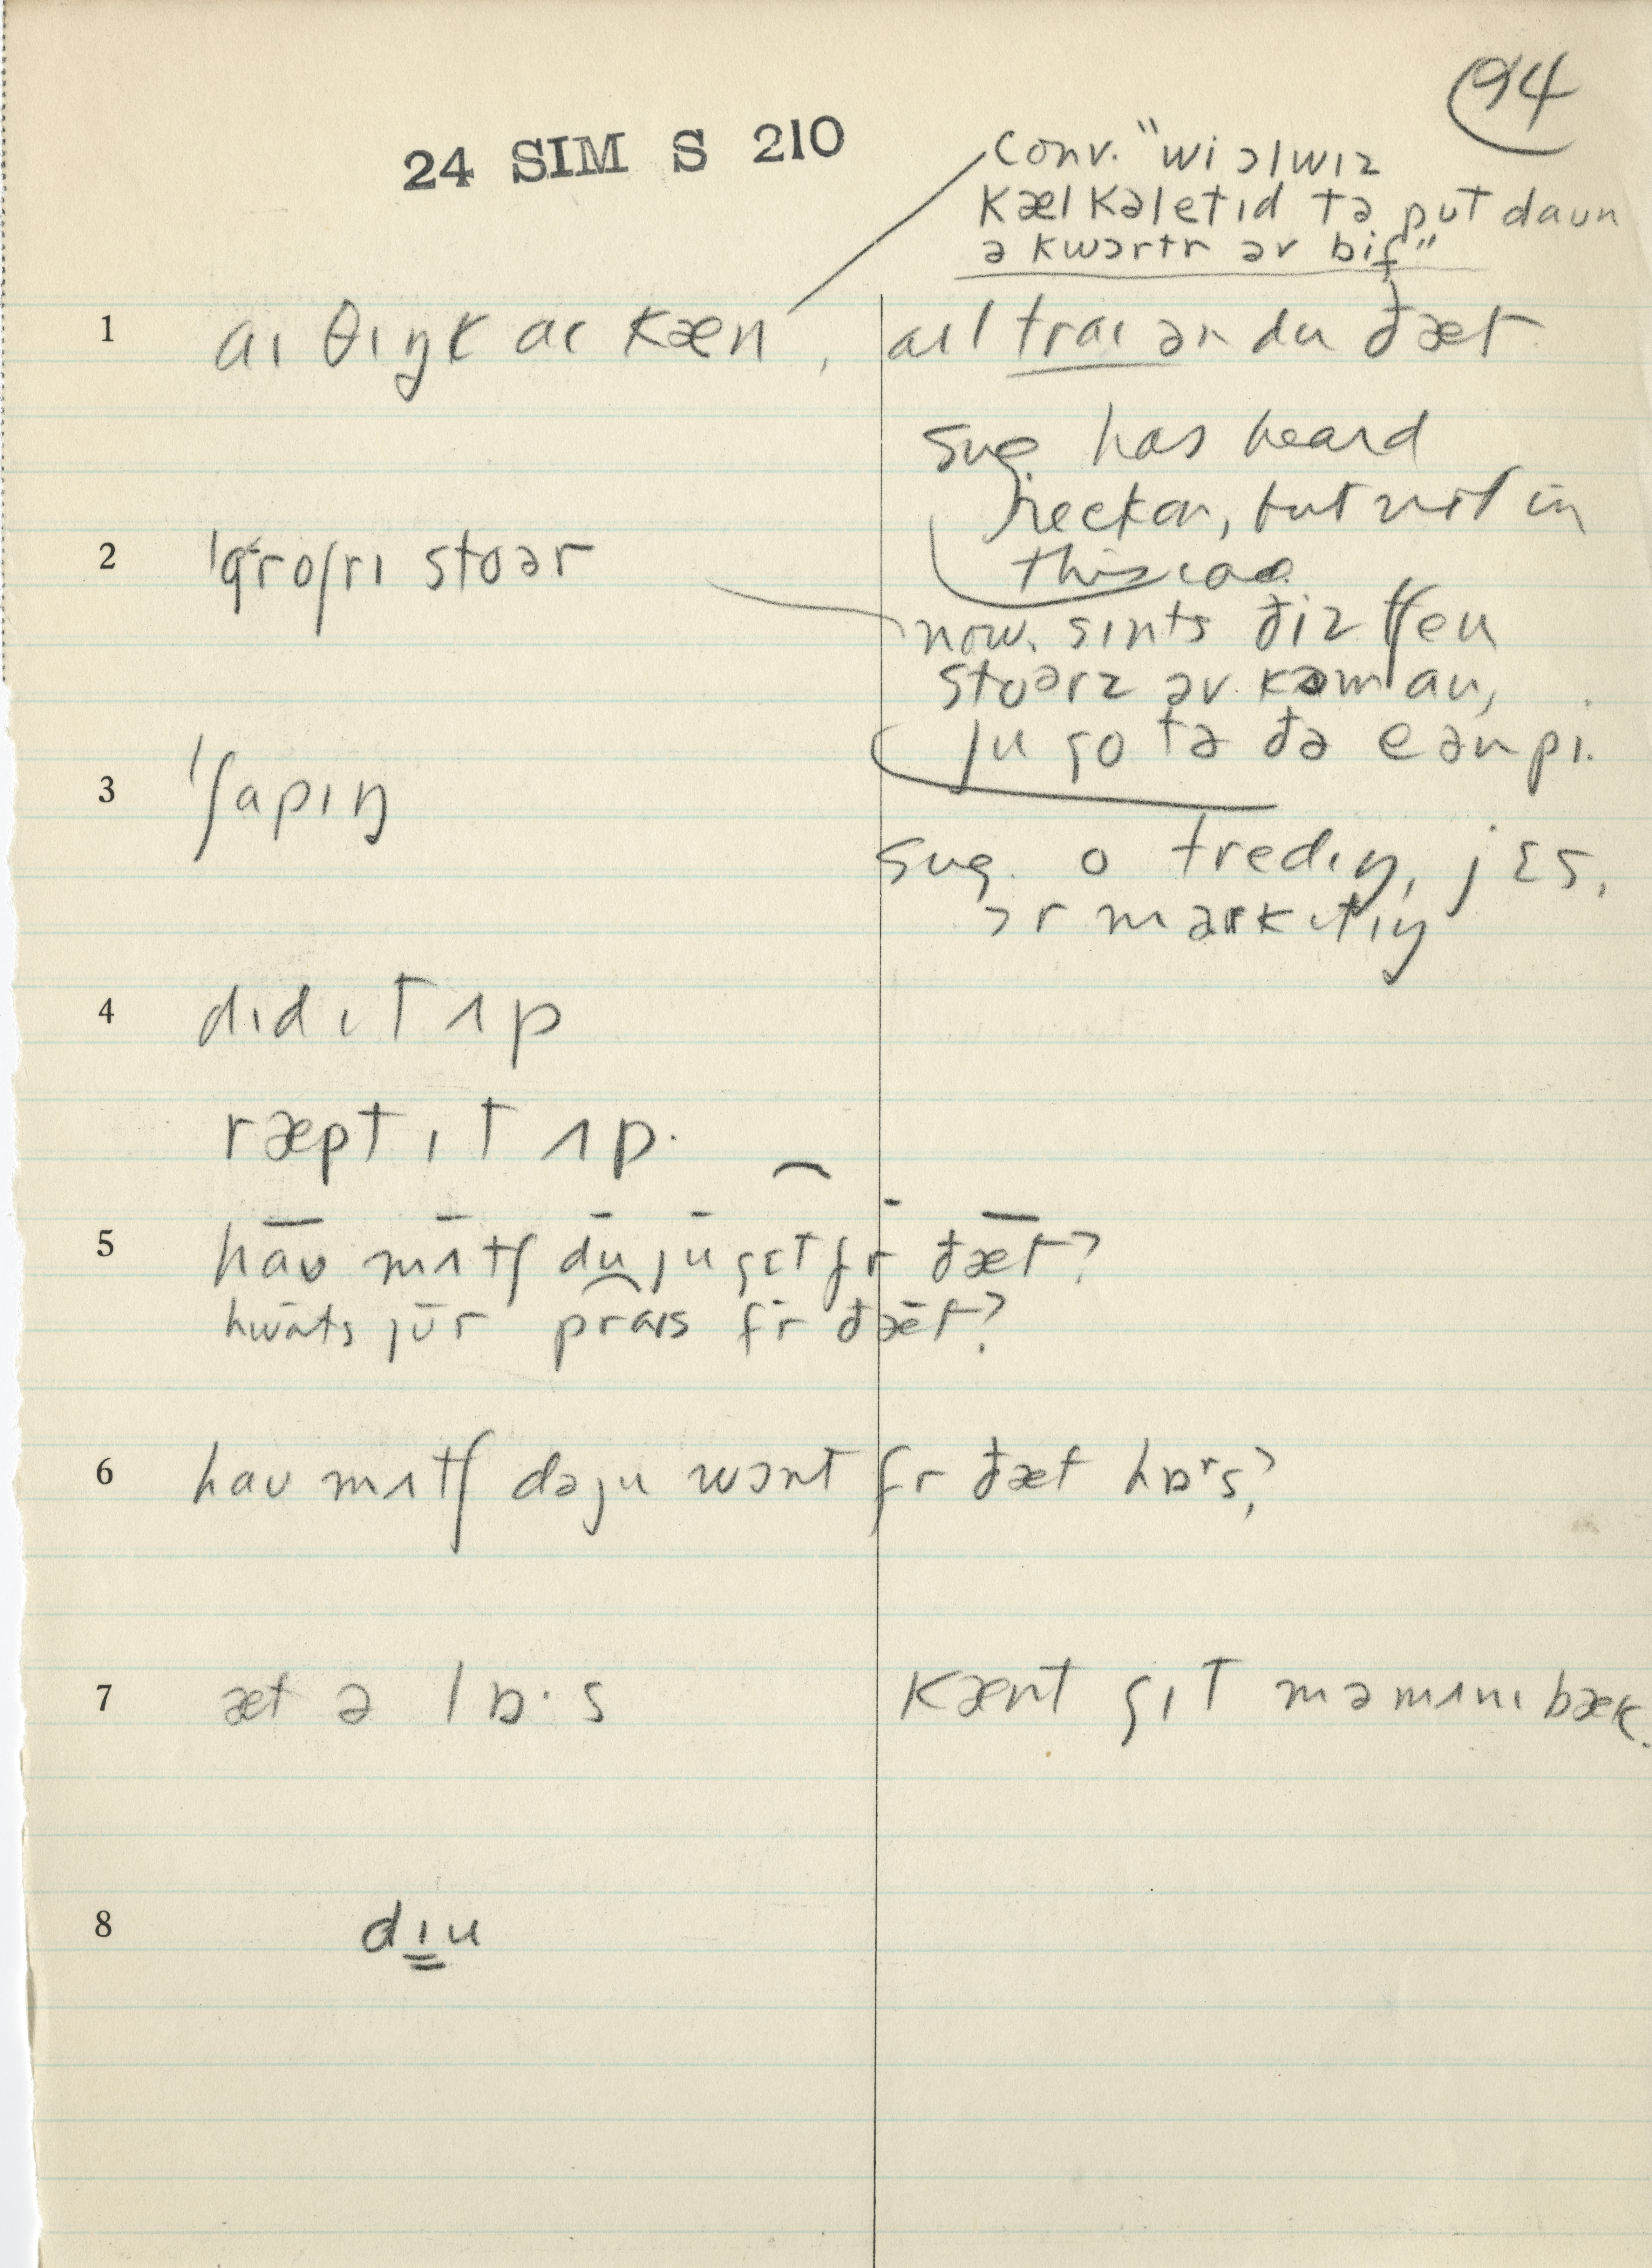 94
24 SIM S 210
Conv. "wi ɔlwɪz
kælkəletɪd tə put daun
ə kwɔrtr əv bif"
1 aɪ θɪŋk aɪ kæn, aɪl traɪ ən du ðæt
sug. has heard
reckon, but not in
this
2 ˈgroʃrɪ stoər
now. sɪnts ðiz tʃeu
stoərz əv kəm au,
ju go tə ðə e ən pi.
3 ˈʃapɪŋ
sug. o tredɪŋ, jɛs,
ɔr markɪtɪŋ
4 dɪd ɪt ʌp
ræpt ɪt ʌp.
5 hāʊ mʌ̄tʃ dū jū gɛt fr̄ ðǣt?
hwāts jūr praɪs fr̄ ðǣt?
6 haʊ mʌtʃ dəju wɔnt fr ðæt hɒʳs?
7 æt ə lɒ·s kænt gɪt mə mʌnɪ bæk.
8 dɪ̳u